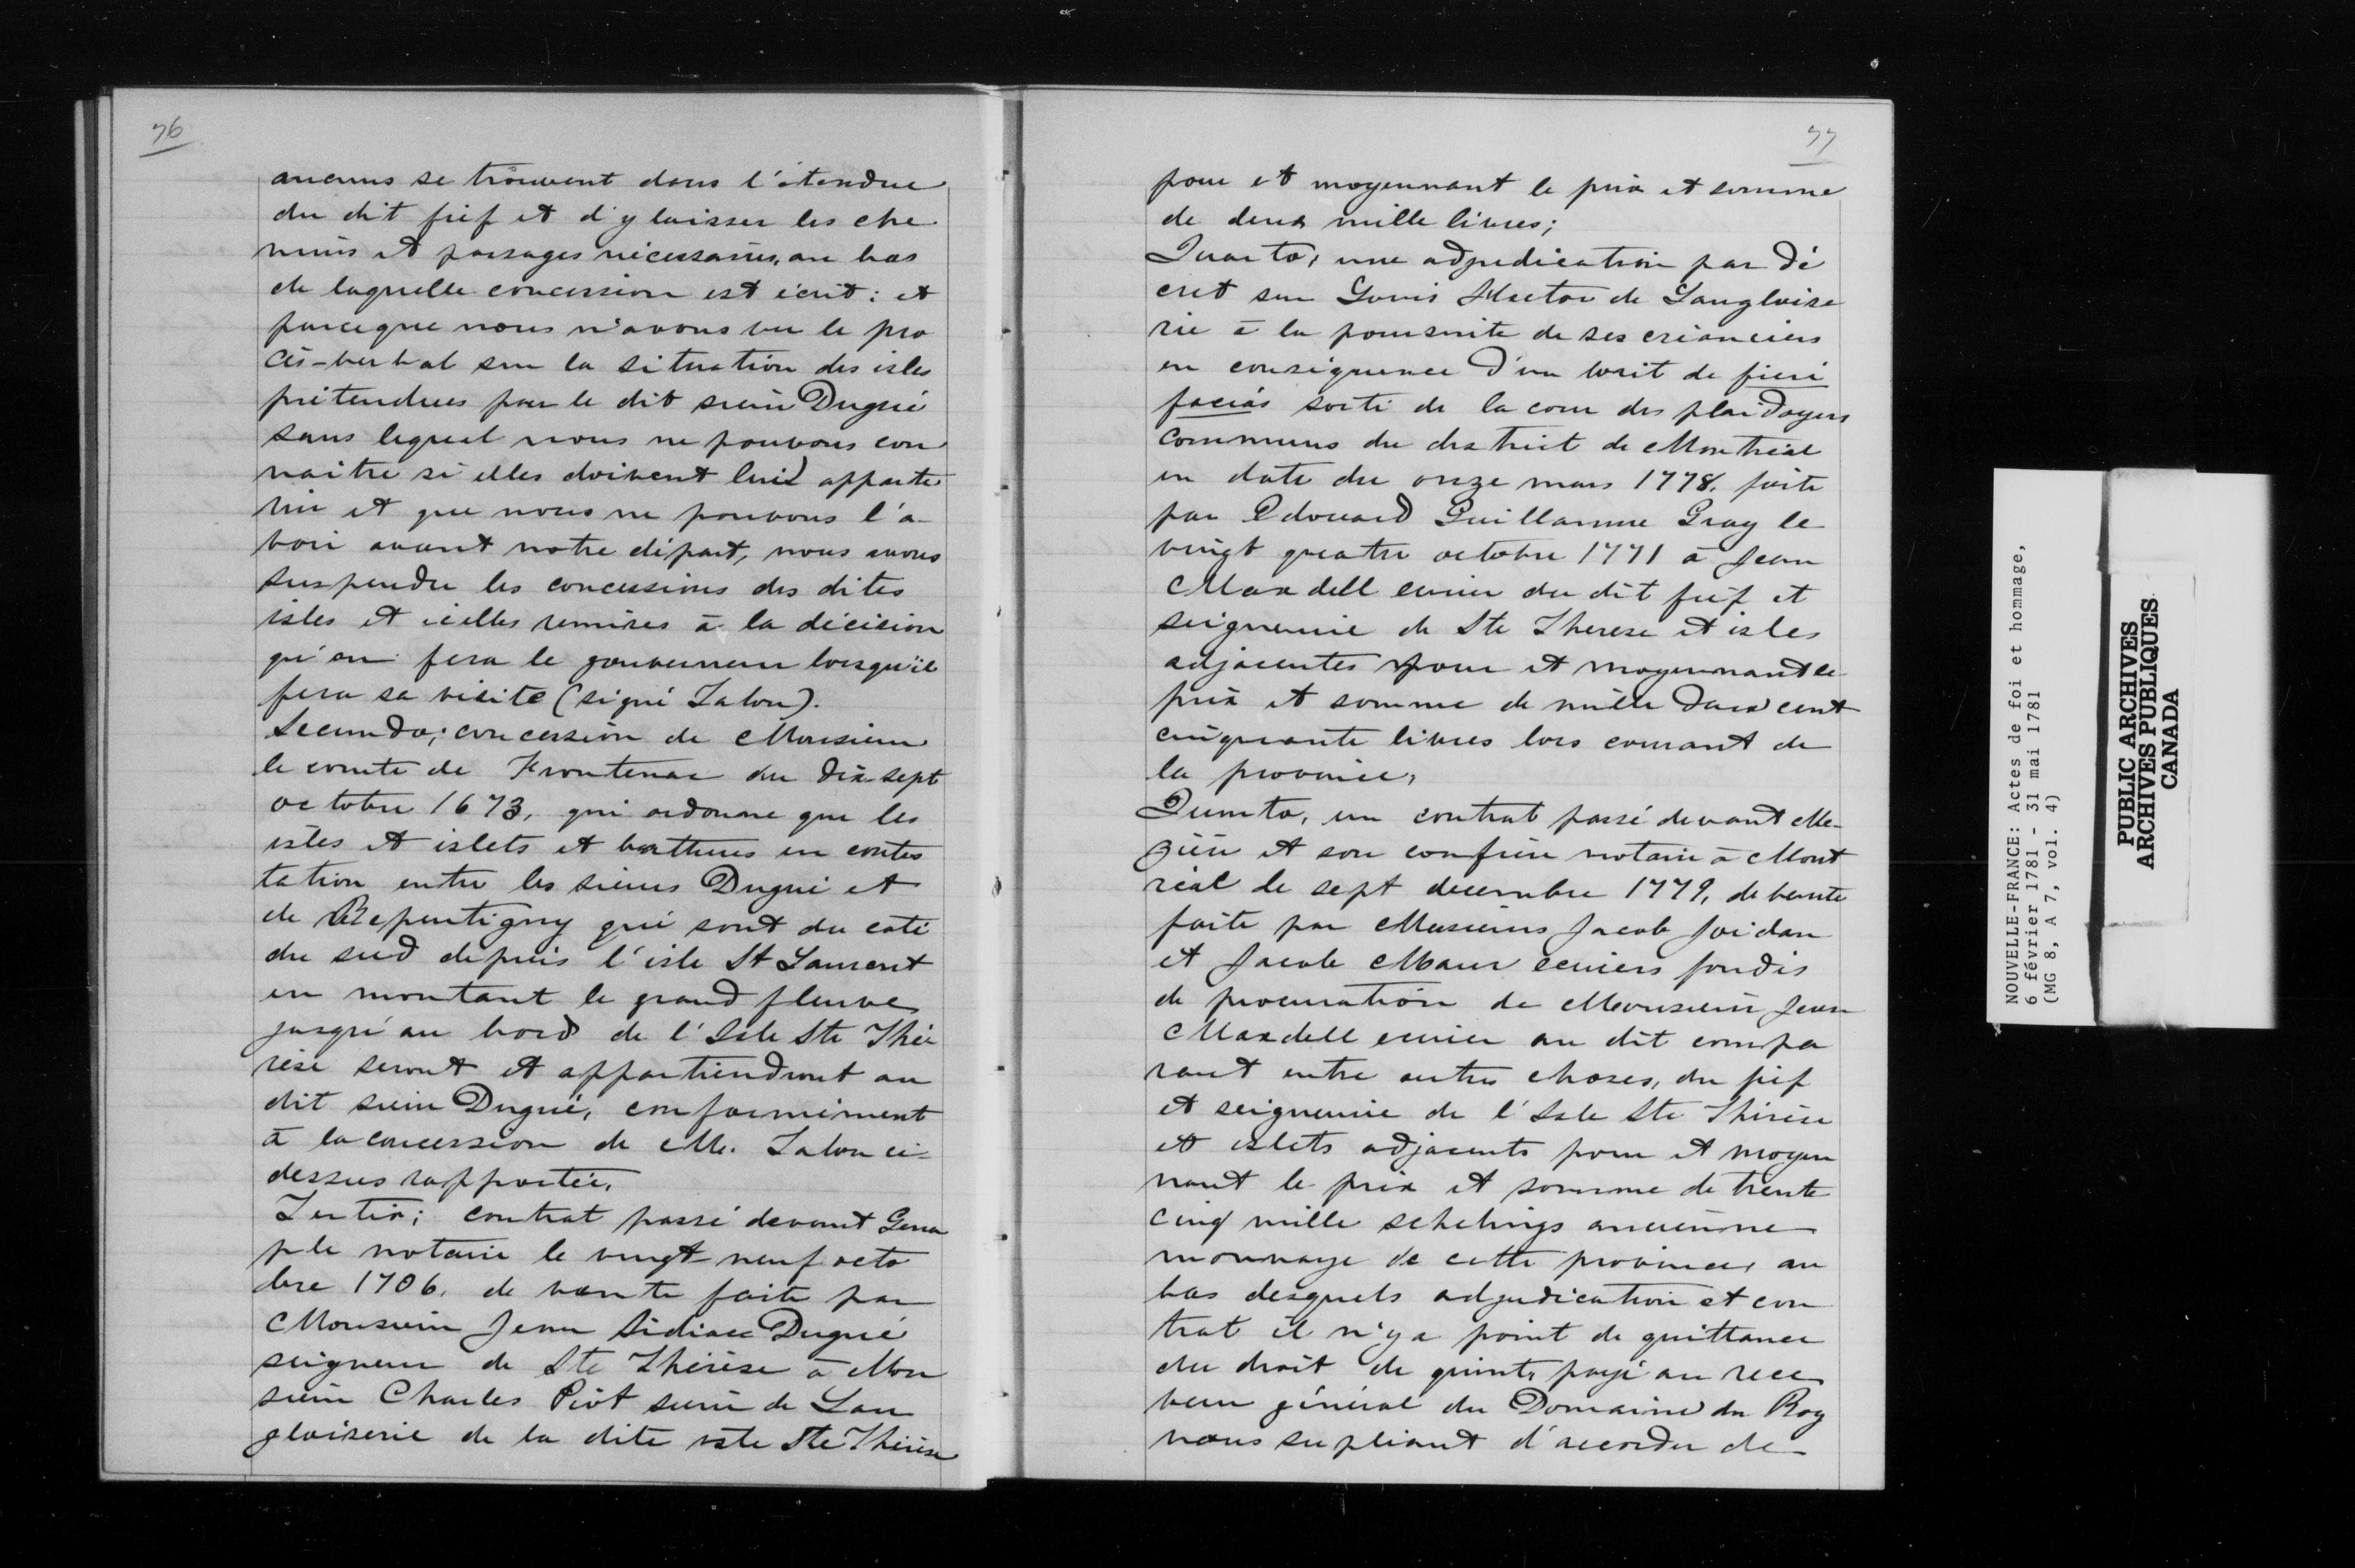 76
aucuns se trouvent dans l'étendue
du dit fief et d'y laisser les che
mins et passages nécessaires, au bas
de laquelle concession est écrit: et
parceque nous n'avons vu le pro
cès-verbal sur la situation des isles
prétendues par le dit sieur Dugué
sans lequel nous ne pouvons con
naitre si elles doivent lui apparte
nir et que nous ne pouvons l'a-
voir avant notre départ, nous avons
suspendu les concessions des dites
isles et icelles remises à la décision
qu'en fera le gouverneur lorsqu'il
fera sa visite (signé Talon).
Secundo; concession de Monsieur
le comte de Frontenac du dix sept
octobre 1673, qui ordonne que les
isles et islets et battures en contes
tation entre les sieurs Dugué et
de Repentigny qui sont du coté
du sud depuis l'isle St Laurent
en montant le grand fleuve
jusqu'au bord de l'Isle Ste Thé
rèse seront et appartiendront au
dit sieur Dugué, conformément
à la concession de M. Talon ci-
dessus rapportée.
Tertio; contrat passé devant Gena
ple notaire le vingt neuf octo
bre 1706, de vente faite par
Monsieur Jean Sidiacc Dugué
seigneur de Ste Thérèse à Mon
sieur Charles Piot sieur de Lan
gloiserie de la dite isle Ste Thérèse
77
pour et moyennant le prix et somme
de deux mille livres;
Quarto, une adjudication par dé
cret sur Louis Hector de Langloise
rie à la poursuite de ses créanciers
en conséquence d'un writ de fieri
facias sorti de la cour des plaidoyers
communs du district de Montréal
en date du onze mars 1778, faite
par Edouard Guillaume Gray le
vingt quatre octobre 1771 à Jean
Maxdell ecuier du dit fief et
seigneurie de Ste Therese et isles
adjacentes pour et moyennant le
prix et somme de mille deux cent
cinquante livres lors courant de
la province,
Quinto, un contrat passé devant Me-
zière et son confrère notaire à Mont
réal le sept decembre 1779, de vente
faite par Messieurs Jacob Joidan
et Jacob Maur écuiers fondés
de procuration de Monsieur Jean
Maxdell ecuier au dit compa
rant entre autres choses, du fief
et seigneurie de l'Isle Ste Thérèse
et islets adjacents pour et moyen
nant le prix et somme de trente
cinq mille schelings ancienne
monnaye de cette province, au
bas desquels adjudication et con
trat il n'y a point de quittance
du droit de quint, payé au rece
veur général du Domaine du Roy
nous supliant d'accorder de
NOUVELLE-FRANCE: Actes de foi et hommage,
6 février 1781 - 31 mai 1781
(MG 8, A 7, vol. 4)
PUBLIC ARCHIVES
ARCHIVES PUBLIQUES
CANADA